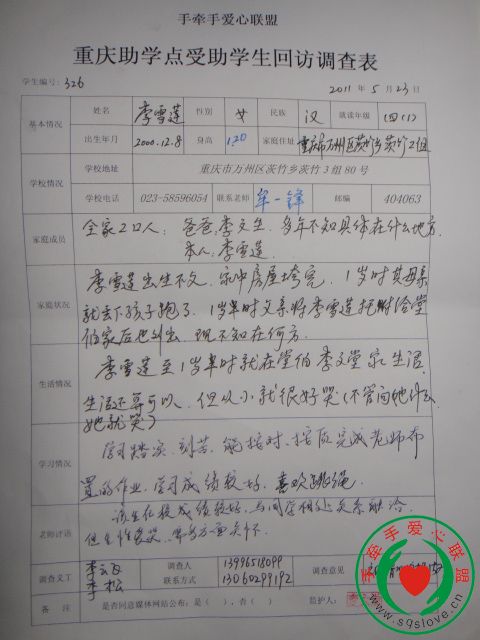 手牵手爱心联盟
重庆助学点受助学生回访调查表
学生编号: 326 2011 年 5 月 23 日
基本情况 姓名 李雪莲 性别 女 民族 汉 就读年级 四(1)
出生年月 2000.12.8 身高 120 家庭住址 重庆市万州区茨竹乡茨竹2组
学校情况 学校地址 重庆市万州区茨竹乡茨竹 3 组 80 号
学校电话 023-58596054 联系老师 牟一锋 邮编 404063
家庭成员 全家2口人: 爸爸,李文生,多年不知具体在什么地方.
本人:李雪莲
家庭状况 李雪莲出生不久,家中房屋垮完,1岁时其母亲
就丢下孩子跑了.1岁半时父亲将李雪莲托附给堂
伯家后也外出,现不知在何方.
生活情况 李雪莲至1岁半时就在堂伯李文堂家生活,
生活还算可以,但从小就很好哭(不管问她什么
她就哭)
学习情况 学习踏实、刻苦,能按时、按质完成老师布
置的作业,学习成绩较好,喜欢跳绳
老师评语 该生在校成绩较好,与同学相处关系融洽
但生性爱哭,
调查义工 李松 调查人联系方式 13996518099
13060299192 调查意见
备注 是否同意媒体网站公布:是( ),否( ) 监护人:
手牵手爱心联盟
www.sqslove.cn